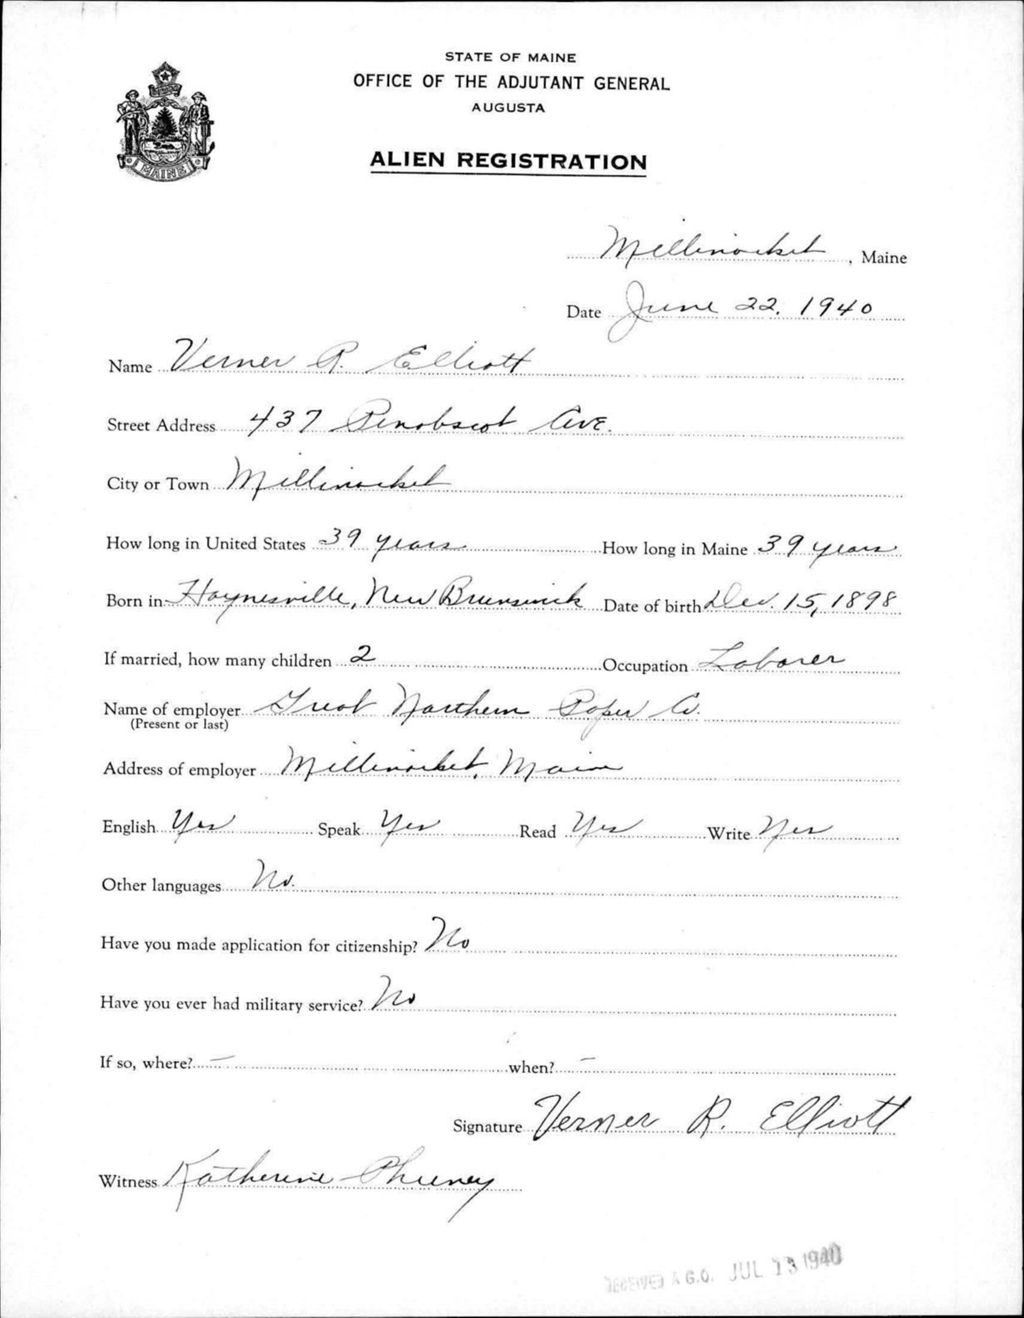 STATE OF MAINE
OFFICE OF THE ADJUTANT GENERAL
AUGUSTA
ALIEN REGISTRATION
MAINE
Millinocket, Maine
Date June 22, 1940
Name Verner R. Elliott
Street Address 437 Penobscot Ave.
City or Town Millinocket
How long in United States 39 years How long in Maine 39 years
Born in Haynesville, New Brunswick Date of birth Dec. 15, 1898
If married, how many children 2 Occupation Laborer
Name of employer Great Northern Paper Co.
(Present or last)
Address of employer Millinocket, Maine
English Yes Speak Yes Read Yes Write Yes
Other languages No.
Have you made application for citizenship? No
Have you ever had military service? No
If so, where? – when? –
Signature Verner R. Elliott
Witness Katherine Phinney
RECEIVED A.G.O. JUL 13 1940